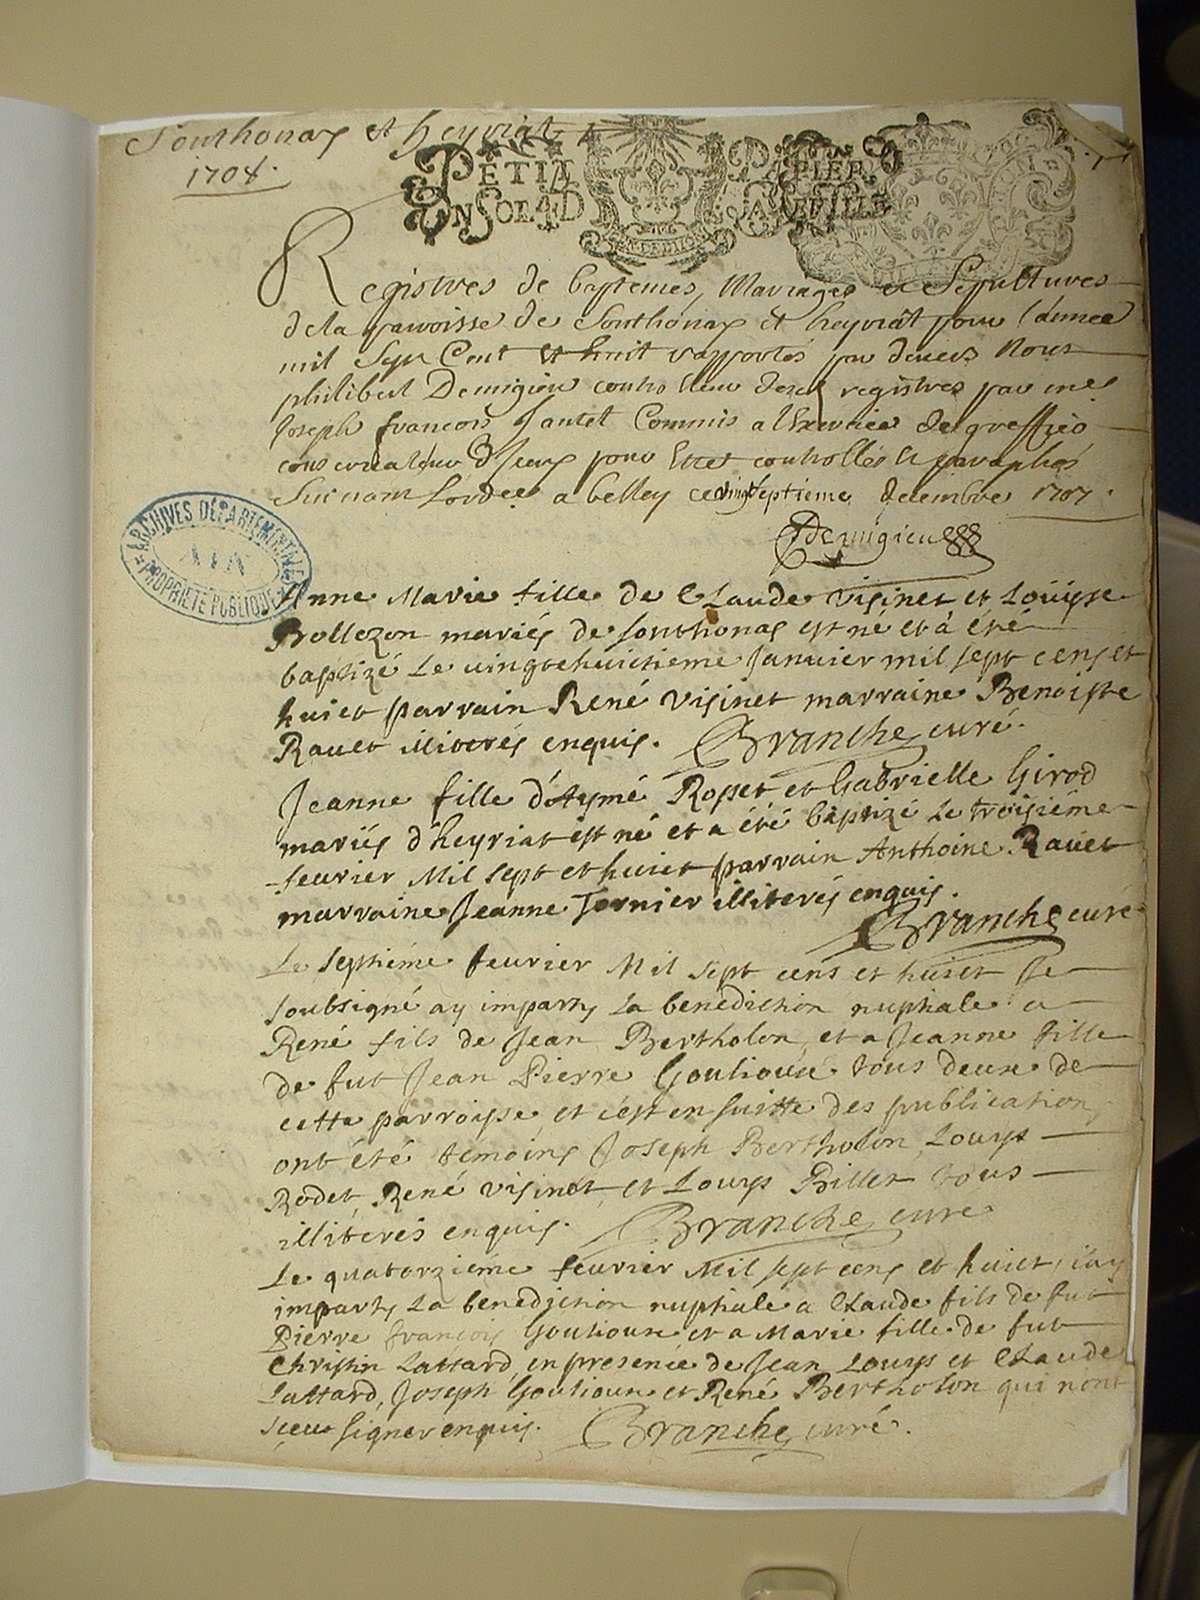 Sonthonax et heyriat
1708.
PETIT PAPIER
UN SOL 4 D LA FEUILLE
Registres de baptemes, Mariages et Sepultures
de la parroisse de Sonthonax et heyriat pour l'année
mil Sept Cent et huit rapportés par devers Nous
philibert Demigieu controlleur desd registres par me
Joseph françois Jantet Commis a l'Exercice de greffier
conservateur d'Iceux pour Estre controllés et paraphés
Suivant L'ordce a belley ce vingtseptieme decembre 1707.
Demigieu
ARCHIVES DÉPARTEMENTALES
AIN
PROPRIÉTÉ PUBLIQUE
Anne Marie fille de Claude Visinet et Louyse
Bollezon mariés de sonthonas est né et à été
baptizé Le vingthuictieme Janvier mil sept cens et
huict parrain René Visinet marraine Benoiste
Ravet illiterés enquis. Branche curé.
Jeanne fille d'Aymé Rosset et Gabrielle Girod
mariés d'heyriat est né et a été baptizé Le troisiéme
fevrier Mil sept et huict parrain Anthoine Ravet
marraine Jeanne Tornier illiterés enquis.
Branche curé
Le septiéme fevrier Mil sept cens et huict Je
soubsigné ay imparty La benediction nuptiale a
René fils de Jean Bertholon, et a Jeanne fille
de fut Jean Pierre Goulioux tous deux de
cette parroisse, et c'est en suitte des publication
ont été témoins Joseph Bertholon, Louys
Rodet, René Visinet, et Louys Billet tous
illiterés enquis. Branche curé
Le quatorziéme fevrier Mil sept cens et huict, j'ay
imparty La benediction nuptiale a Claude fils de fut
Pierre françois Goulioux et a Marie fille de fut
Christin Lattard, en presence de Jean Louys et Claude
Lattard, Joseph Goulioux et René Bertholon qui n'ont
sceu signer enquis. Branche curé.